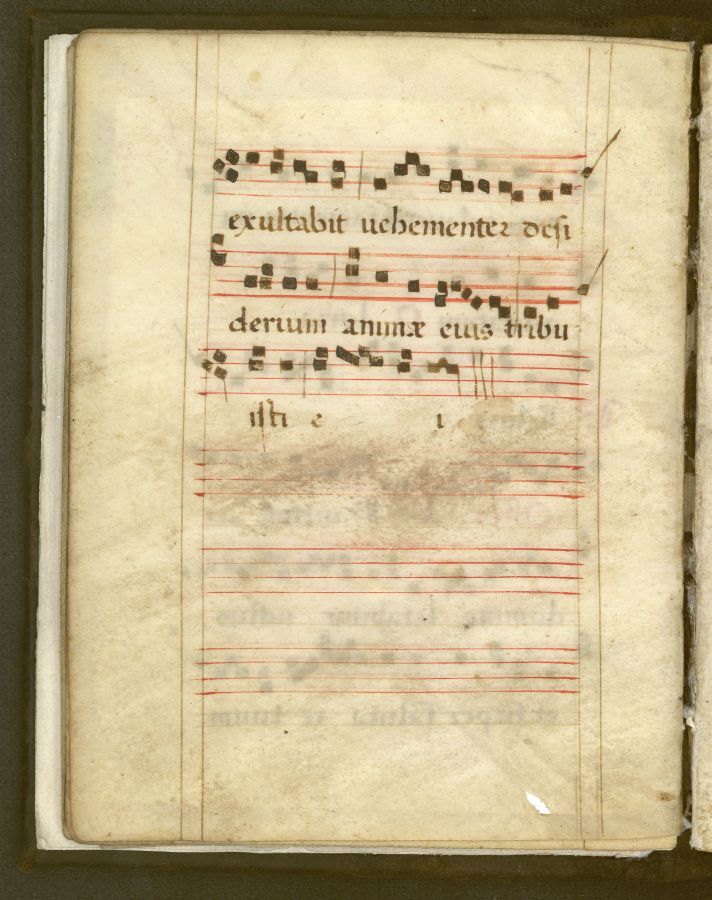 exultabit uehementer desi
derium animæ eius tribu
isti e i